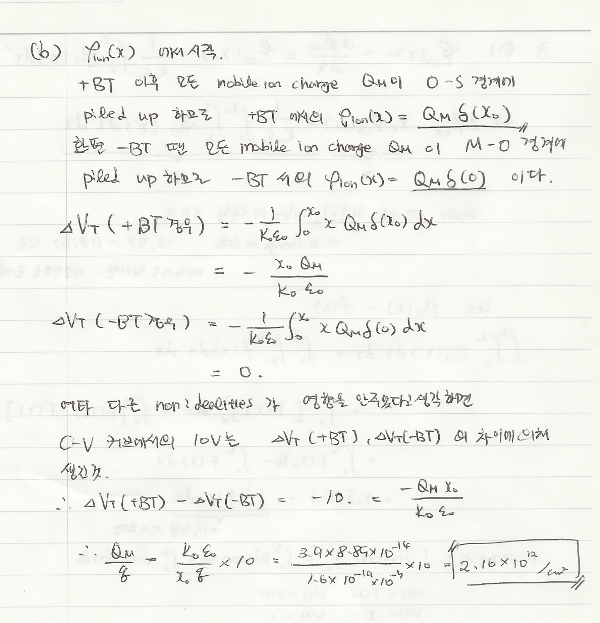 (b) ρion(x) 에서 시작.
+BT 이후 모든 mobile ion charge QM이 O-S 경계에
piled up 하므로 +BT 에서의 ρion(x) = QM δ(x₀)
한편 -BT 땐 모든 mobile ion charge QM 이 M-O 경계에
piled up 하므로 -BT 서의 ρion(x) = QM δ(0) 이다.
ΔVT (+BT 경우) = - 1/(K₀ε₀) ∫₀^x₀ x QM δ(x₀) dx
= - x₀ QM / (K₀ ε₀)
ΔVT (-BT 경우) = - 1/(K₀ε₀) ∫₀^x₀ x QM δ(0) dx
= 0.
여타 다른 non idealities 가 영향을 안주었다고 생각하면
C-V 커브에서의 10V는 ΔVT (+BT), ΔVT(-BT) 의 차이에 의해
생긴것.
∴ ΔVT (+BT) - ΔVT(-BT) = -10. = -QM x₀ / (K₀ ε₀)
∴ QM/q = K₀ε₀/(x₀ q) × 10 = (3.9×8.85×10⁻¹⁴)/(1.6×10⁻¹⁹×10⁻⁴) ×10 = 2.16×10¹² /cm²